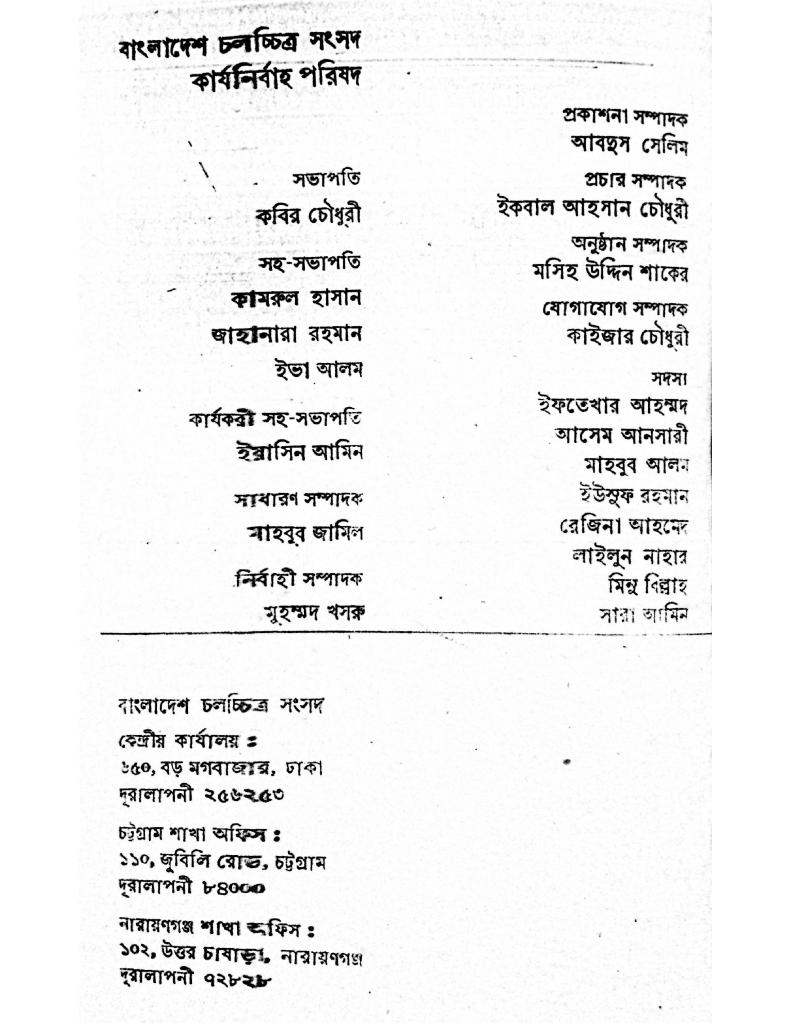 বাংলাদেশ চলচ্চিত্র সংসদ
কার্যনির্বাহ পরিষদ
সভাপতি
কবির চৌধুরী
সহ-সভাপতি
কামরুল হাসান
জাহানারা রহমান
ইভা আলম
কার্যকরী সহ-সভাপতি
ইয়াসিন আমিন
সাধারণ সম্পাদক
মাহবুব জামিল
নির্বাহী সম্পাদক
মুহম্মদ খসরু
প্রকাশনা সম্পাদক
আবদুস সেলিম
প্রচার সম্পাদক
ইকবাল আহসান চৌধুরী
অনুষ্ঠান সম্পাদক
মসিহ উদ্দিন শাকের
যোগাযোগ সম্পাদক
কাইজার চৌধুরী
সদস্য
ইফতেখার আহম্মদ
আসেম আনসারী
মাহবুব আলম
ইউসুফ রহমান
রেজিনা আহমেদ
লাইলুন নাহার
মিনু বিল্লাহ
সারা আমিন
বাংলাদেশ চলচ্চিত্র সংসদ
কেন্দ্রীয় কার্যালয় :
৬৫০, বড় মগবাজার, ঢাকা
দূরালাপনী ২৫৬২৫৩
চট্টগ্রাম শাখা অফিস :
১১০, জুবিলি রোড, চট্টগ্রাম
দূরালাপনী ৮৪০০০
নারায়ণগঞ্জ শাখা অফিস :
১০২, উত্তর চাষাড়া, নারায়ণগঞ্জ
দূরালাপনী ৭২৮২৮